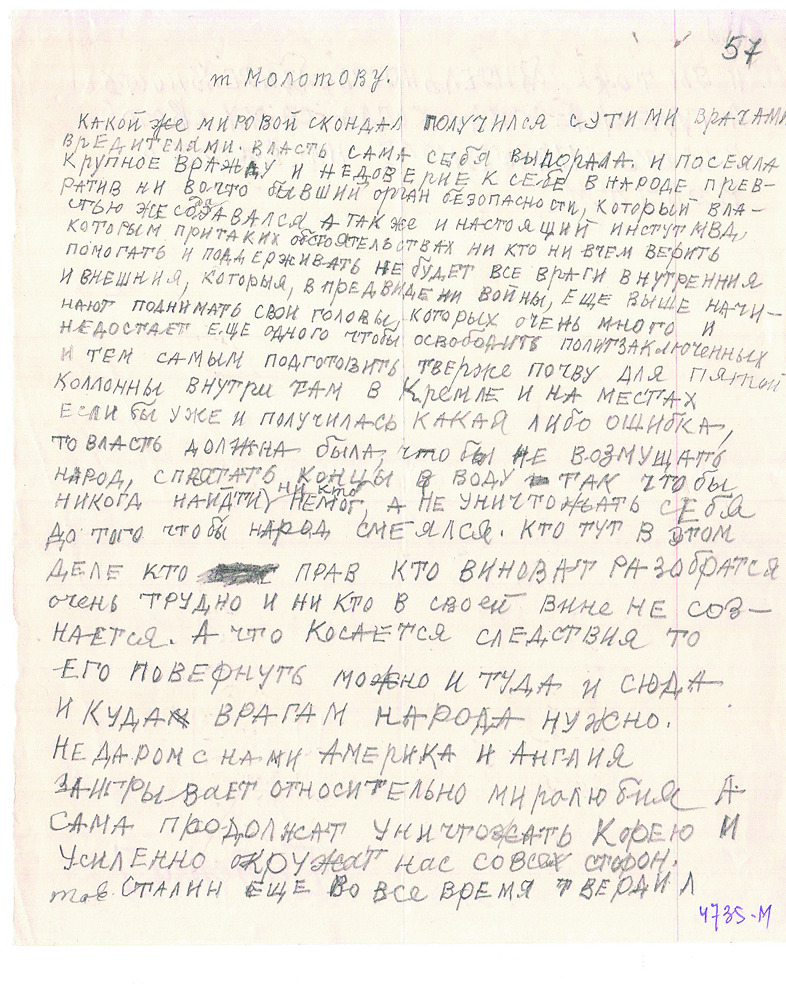 57
т Молотову.
КАКОЙ же МИРОВОЙ СКОНДАЛ ПОЛУЧИЛСЯ СУТИМИ ВРАЧАМИ
ВРЕДИТЕЛЯМИ. ВЛАСТЬ САМА СЕБЯ ВЫПОРАЛА. И ПОСЕЯЛА
КРУПНОЕ ВРАЖДУ И НЕДОВЕРИЕ К СЕБЕ В НАРОДЕ ПРЕВ-
РАТИВ НИ ВОЧТО БЫВШИЙ орган БЕЗОПАСНОСТИ, КОТОРЫЙ ВЛА-
СТЬЮ ЖЕ СОЗДАВАЛСЯ А ТАК же И НАСТОЯЩИЙ ИНСТУТ МВД,
КОТОРЫМ ПРИТАКИХ ОБСТОЯТЕЛЬСТВАХ НИ КТО НИ ВЧЕМ ВЕРИТЬ
ПОМОГАТЬ И ПОДДЕРЖИВАТЬ НЕ БУДЕТ ВСЕ ВРАГИ ВНУТРЕННИЯ
И ВНЕШНИЯ, КОТОРЫЯ, В ПРЕДВИДЕНИ ВОЙНЫ, ЕЩЕ ВЫШЕ НАЧИ-
НАЮТ ПОДНИМАТЬ СВОИ ГОЛОВЫ, КОТОРЫХ ОЧЕНЬ МНОГО И
НЕДОСТАЕТ ЕЩЕ ОДНОГО ЧТОБЫ ОСВОБОДИТЬ ПОЛИТЗАКЛЮЧЕННЫХ
И ТЕМ САМЫМ ПОДГОТОВИТЬ ТВЕРЖЕ ПОЧВУ ДЛЯ ПЯТОЙ
КОЛЛОННЫ ВНУТРИ ТАМ В КРЕМЛЕ И НА МЕСТАХ
ЕСЛИ БЫ УЖЕ И ПОЛУЧИЛАСЬ КАКАЯ ЛИБО ОШИБКА,
ТО ВЛАСТЬ ДОЛЖНА БЫЛА, ЧТО БЫ НЕ ВОЗМУЩАТЬ
НАРОД, СПРЯТАТЬ КОНЦЫ В ВОДУ ТАК ЧТО БЫ
НИКОГА НАЙДТИ НИ КТО НЕМОГ, А НЕ УНИЧТОЖАТЬ СЕБЯ
ДО ТОГО ЧТО БЫ НАРОД СМЕЯЛСЯ. КТО ТУТ В ЭТОМ
ДЕЛЕ КТО ПРАВ КТО ВИНОВАТ РАЗОБРАТСЯ
ОЧЕНЬ ТРУДНО И НИ КТО В СВОЕЙ ВИНЕ НЕ СОЗ-
НАЕТСЯ. А ЧТО КОСАЕТСЯ СЛЕДСТВИЯ ТО
ЕГО ПОВЕРНУТЬ МОЖНО И ТУДА И СЮДА
И КУДА ВРАГАМ НАРОДА НУЖНО.
НЕ ДАРОМ С НАМИ АМЕРИКА И АНГЛИЯ
ЗАИГРЫВАЕТ ОТНОСИТЕЛЬНО МИРОЛЮБИЯ А
САМА ПРОДОЛЖАТ УНИЧТОЖАТЬ КОРЕЮ И
УСИЛЕННО ОКРУЖАТ НАС СОВСЕХ СТОРОН.
тов. СТАЛИН ЕЩЕ ВО ВСЕ ВРЕМЯ ТВЕРДИЛ
4735-М